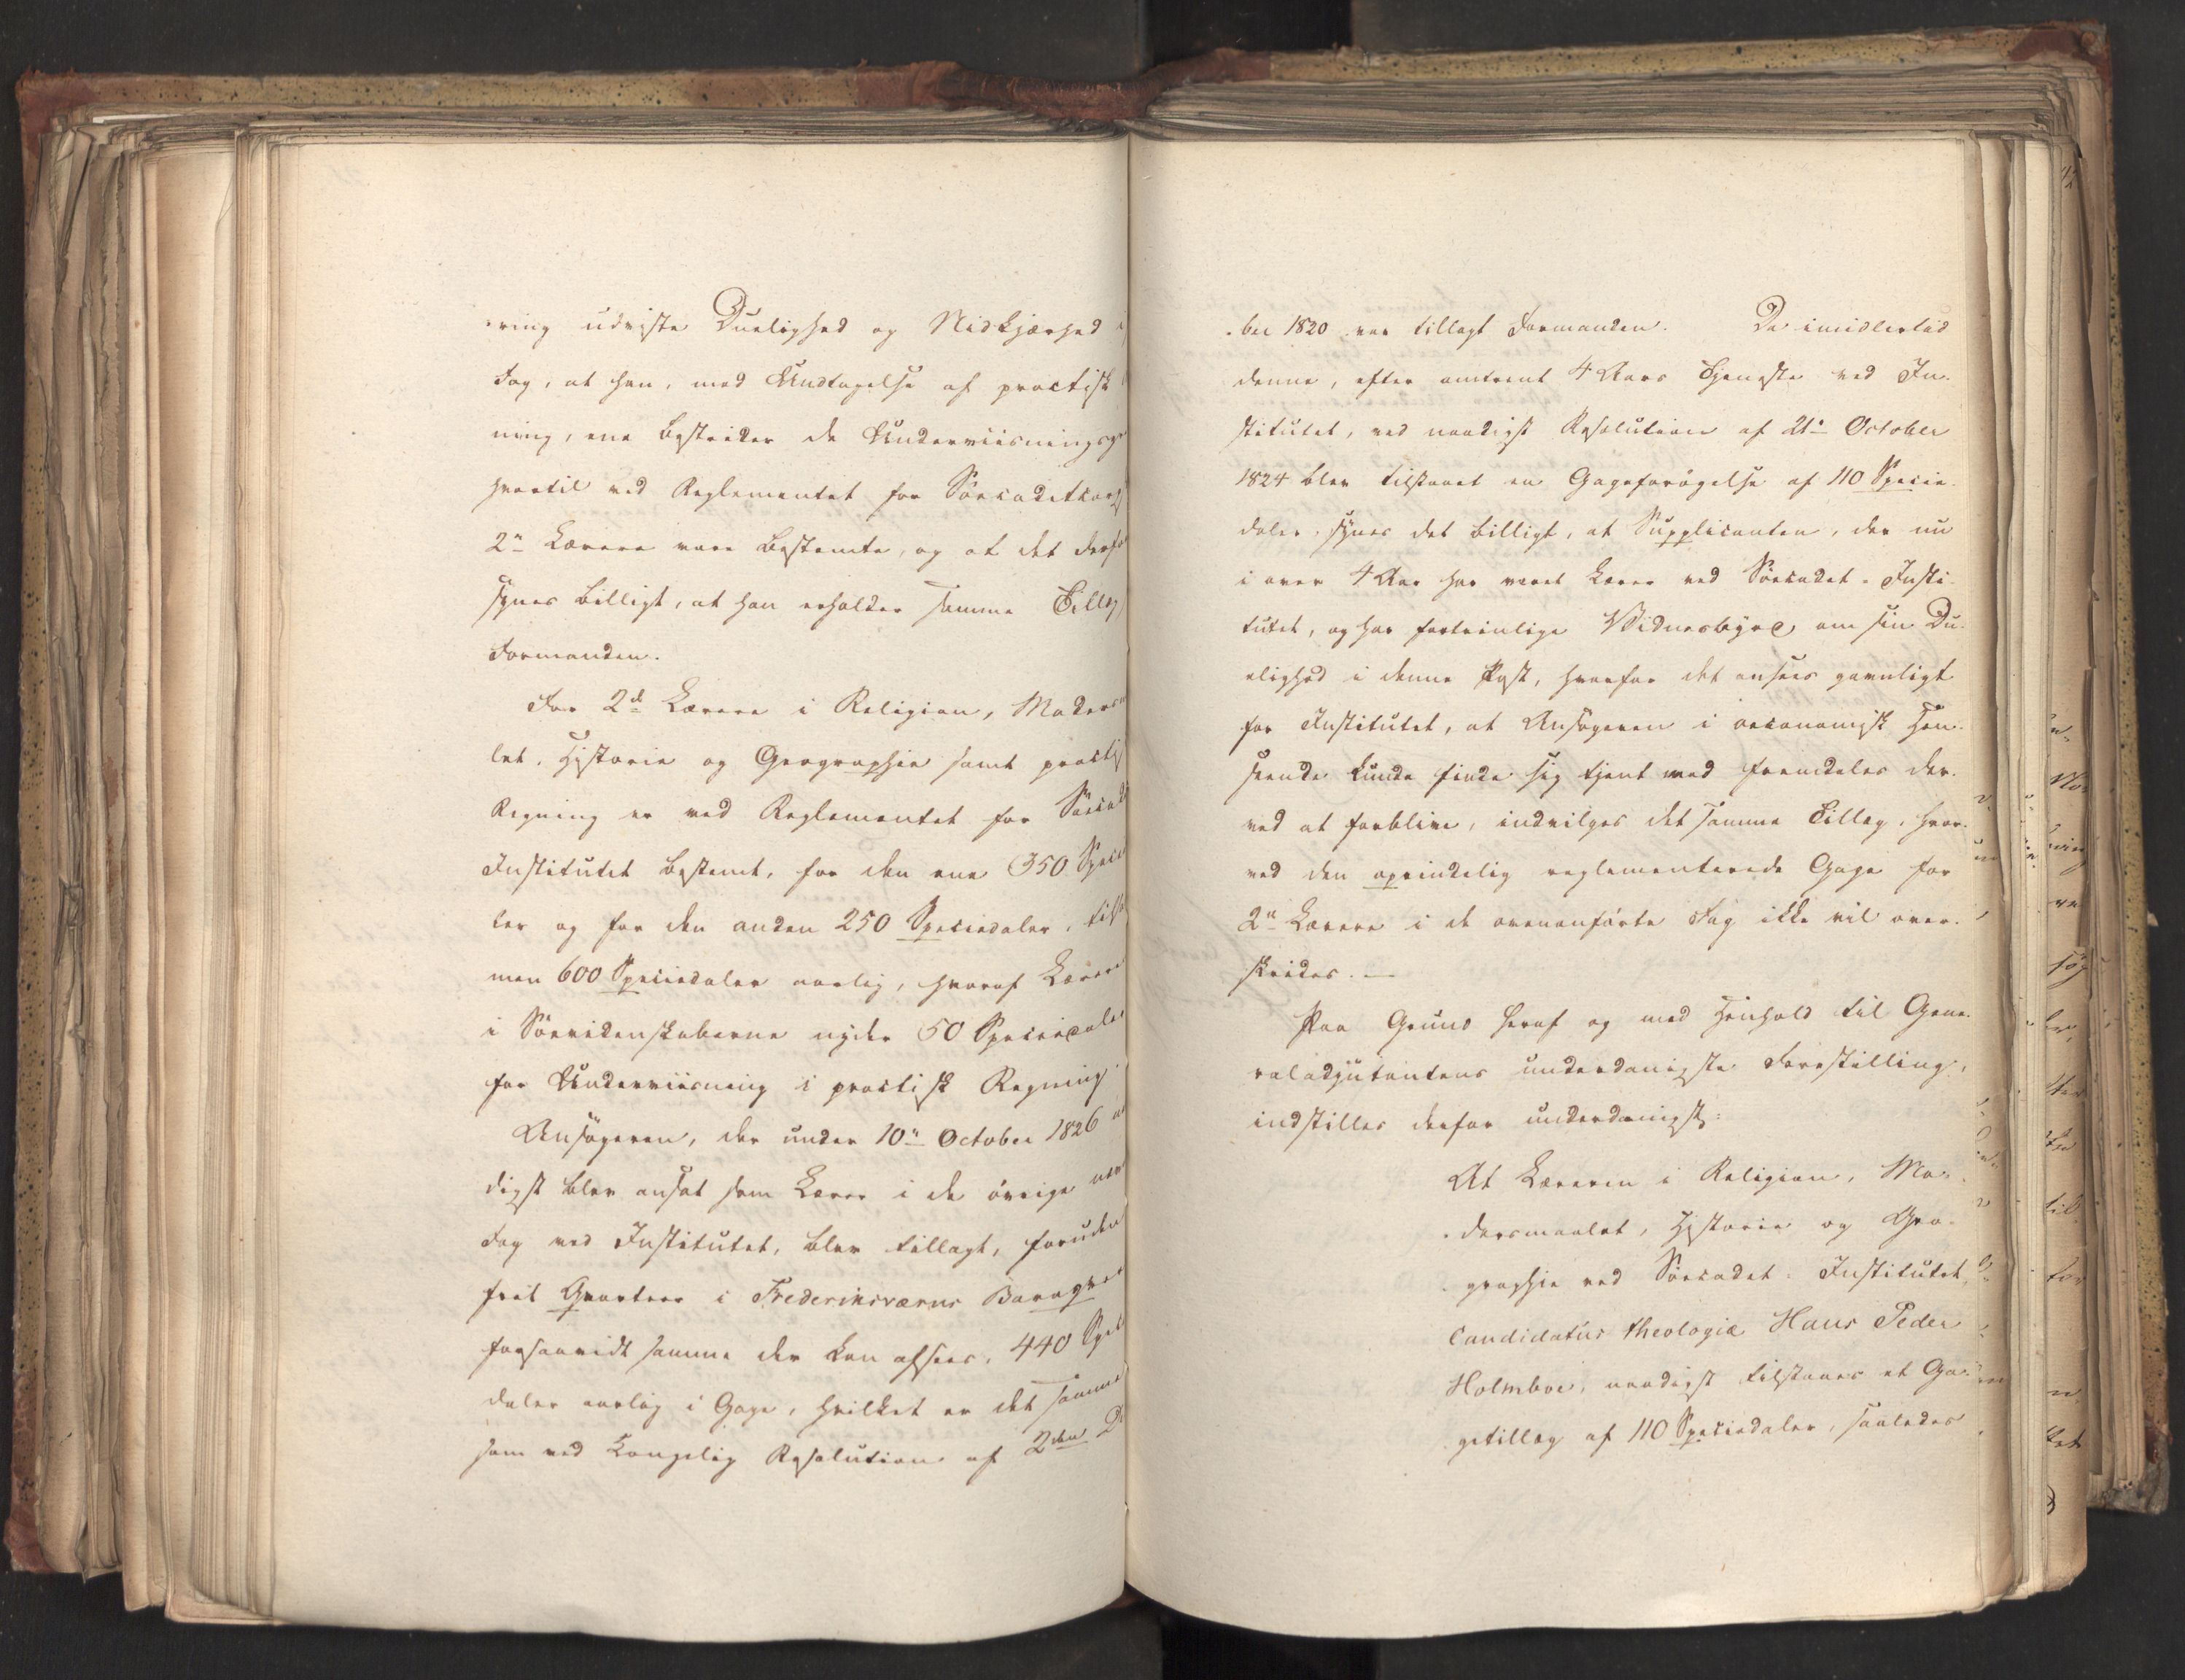 -ring udviste Duelighed og Nidkjærhed i
Fag, at han, med Undtagelse af practisk
ning, ene bestrider de Underviisningsge
hvortil ved Reglementet for Söecadetcorps
2de Lærere vare bestemte, og at det derfo
synes billigt, at han erholder samme Tillæg
Formanden.
For 2de Lærere i Religion, Moders
let, Historie og Geographie samt practis
Regning er ved Reglementet for Söecad
Institutet bestemt, for den ene 350 Speci
ler og for den anden 250 Speciedaler, tils
men 600 Speciedaler aarlig, hvoraf Lærere
i Söevidenskaberne nyder 50 Speciedaler
for Underviisning i practisk Regning.
Ansøgeren, der under 10de October 1826 na
digst blev ansat som Lærer i de övrige
Fag ved Institutet, blev tillagt, foruden
frit Qvarteer i Frederiksværns Baraquer
forsaavidt samme der kan afsees, 440 Spe
daler aarlig i Gage, hvilket er det samme
som ved Kongelig Resolution af 2den D
-ber 1820 var tillagt Formanden. Da imidlertid
denne, efter omtrent 4 Aars Tjeneste ved In-
stitutet, ved naadigst Resolution af 21de October
1824 blev tilstaaet en Gageforögelse af 110 Specie-
daler, synes det billigt, at Supplicanten, der nu
i over 4 Aar har været Lærer ved Söecadet-Insti-
tutet, og har fortrinlige Vidnesbyrd om sin Du-
elighed i denne Post, hvorfor det ansees gavnligt
for Institutet, at Ansøgeren i oeconomisk Hen-
seende kunde finde sig tjent med fremdeles der-
ved at forblive, indvilges det samme Tillæg, hvor-
ved den oprindelig reglementerede Gage for
2de Lærere i de ovenanförte Fag ikke vil over-
skrides. —
Paa Grund heraf og med Henhold til Gene-
raladjutantens underdanigste Forestilling,
indstilles derfor underdanigst:
At Læreren i Religion, Mo-
dersmaalet, Historie og Geo-
graphie ved Söecadet-Institutet,
Candidatus theologiæ Hans Peder
Holmboe, naadigst tilstaaes et Ga-
getillæg af 110 Speciedaler, saaledes